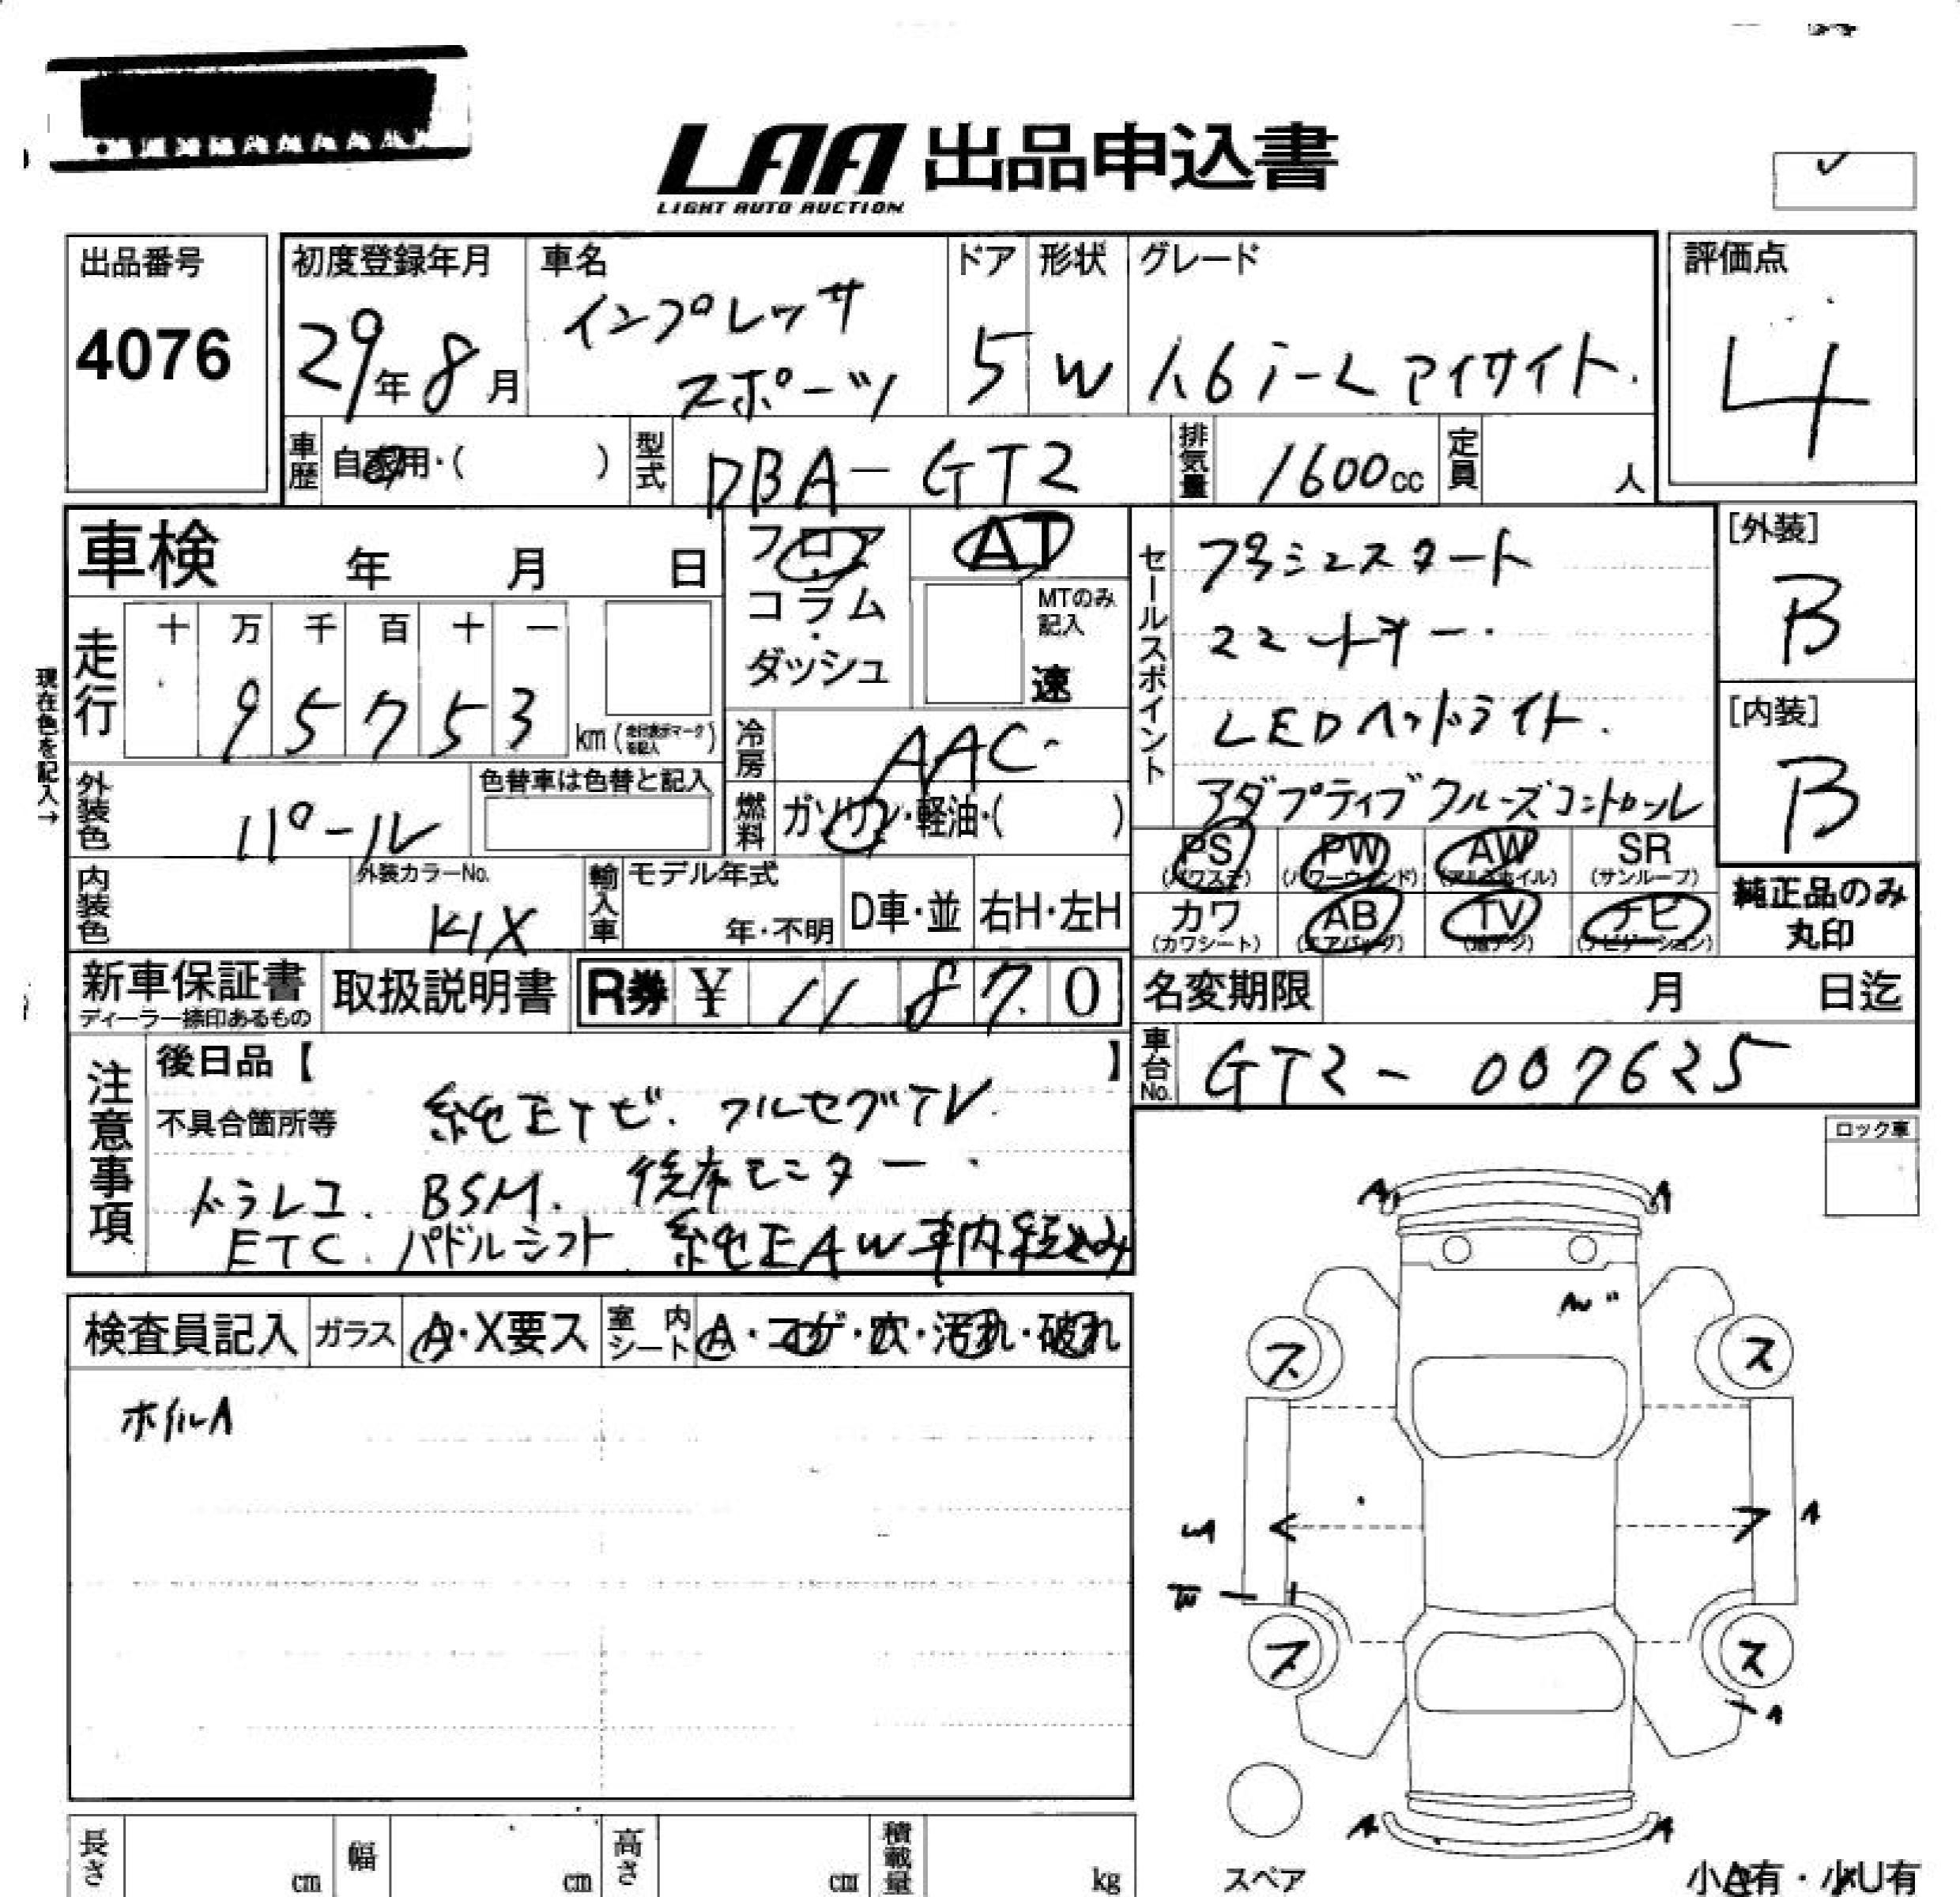 LAA 出品申込書
LIGHT AUTO AUCTION
出品番号
4076
初度登録年月
29年8月
車名
インプレッサ
スポーツ
ドア
5
形状
W
グレード
1.6 i-L アイサイト.
評価点
4
車歴
自家用・( )
型式
DBA-GT2
排気量
1600cc
定員
人
車検 年 月 日
現在色を記入→
走行
十 万 千 百 十 一
9 5 7 5 3
km(走行表示マークを記入)
フロア
・
コラム
・
ダッシュ
AT
MTのみ
記入
速
冷房
AAC
燃料
ガソリン・軽油・( )
外装色
パール
色替車は色替と記入
内装色
外装カラーNo.
K1X
輸入車
モデル年式
年・不明
D車・並
右H・左H
セールスポイント
プッシュスタート
LEDヘッドライト.
アダプティブクルーズコントロール
[外装]
B
[内装]
B
PS
(パワステ)
PW
(パワーウィンド)
AW
(アルミホイル)
SR
(サンルーフ)
カワ
(カワシート)
AB
(エアバッグ)
TV
(地デジ)
ナビ
(ナビゲーション)
純正品のみ
丸印
新車保証書
ディーラー捺印あるもの
取扱説明書
R券 ¥ 11870
名変期限 月 日迄
車台No.
GT2-007625
注意事項
後日品【 】
不具合箇所等
純正ナビ. フルセグTV.
ドラレコ. BSM.
モニター.
ETC. パドルシフト 純正AW車内積込み
ロック車
検査員記入
ガラス
A・X要ス
室内シート
A・コゲ・穴・汚れ・破れ
ホイルA
A A
ス ス
A
ス ス
A
A A
スペア
小A有・小U有
長さ cm
幅 cm
高さ cm
積載量 kg